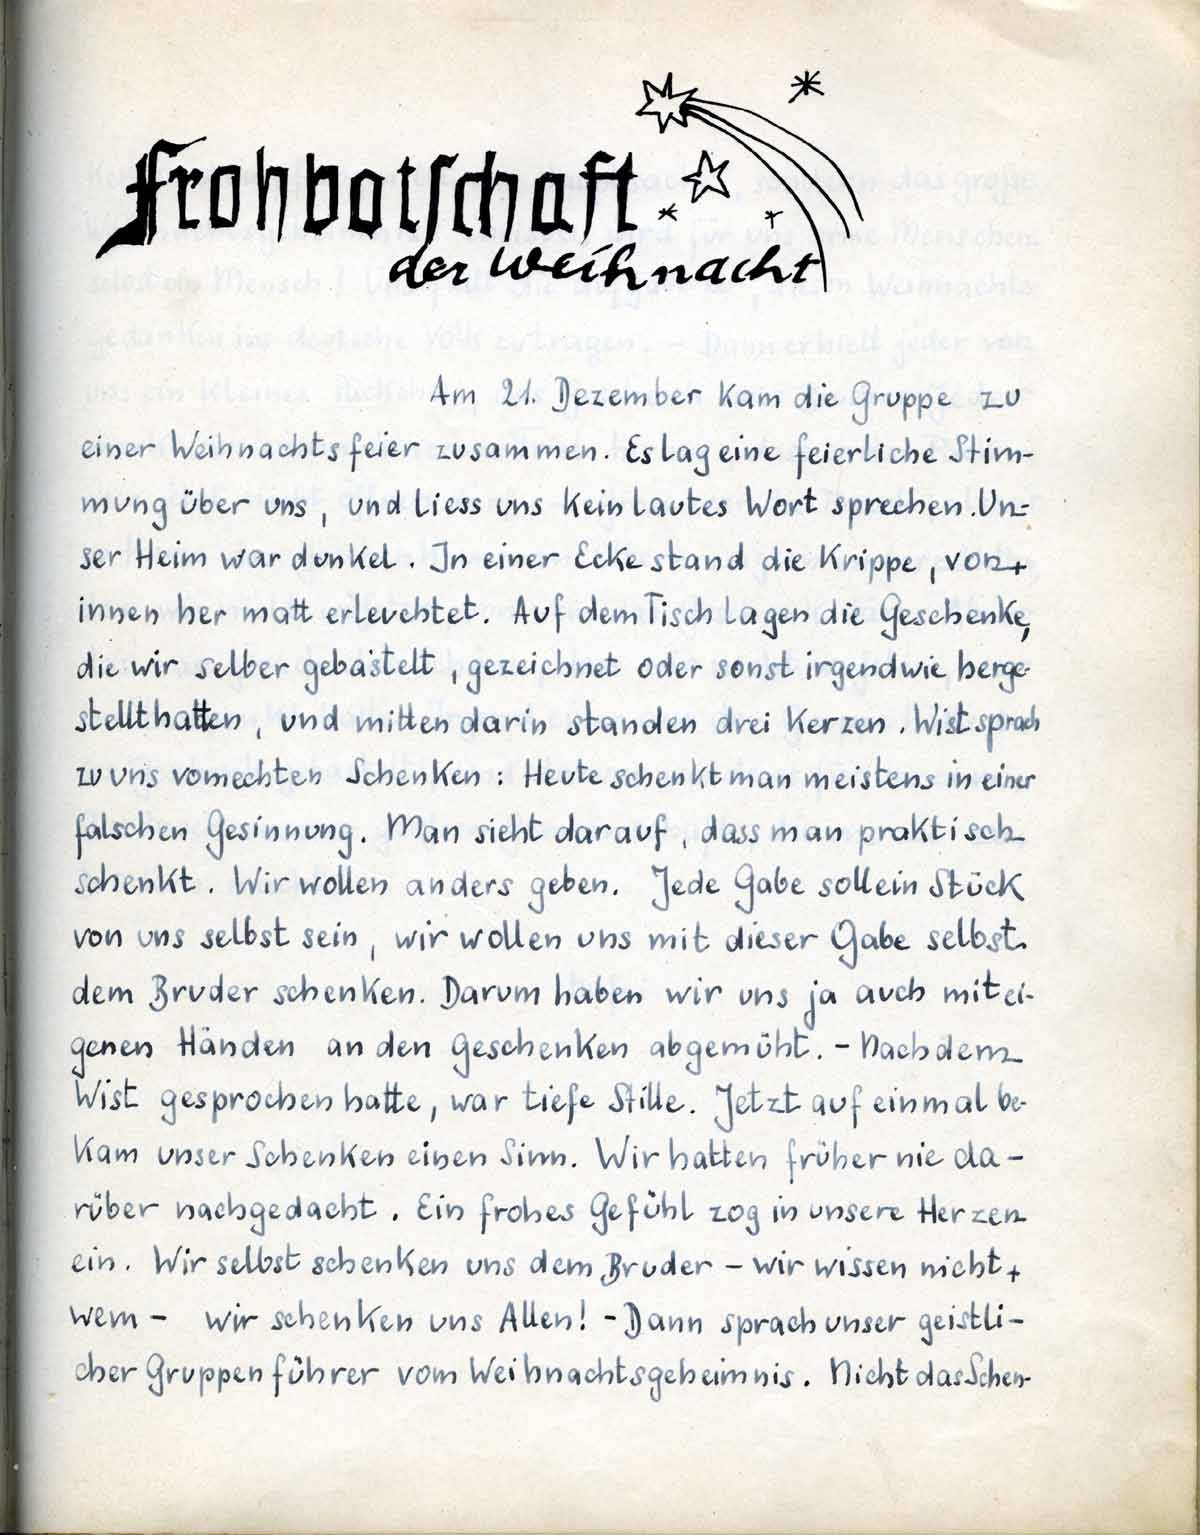 Frohbotschaft
der Weihnacht
Am 21. Dezember kam die Gruppe zu
einer Weihnachtsfeier zusammen. Es lag eine feierliche Stim-
mung über uns, und liess uns kein lautes Wort sprechen. Un=
ser Heim war dunkel. In einer Ecke stand die Krippe, von
innen her matt erleuchtet. Auf dem Tisch lagen die Geschenke,
die wir selber gebastelt, gezeichnet oder sonst irgendwie herge-
stellt hatten, und mitten darin standen drei Kerzen. Wist sprach
zu uns vom echten Schenken: Heute schenkt man meistens in einer
falschen Gesinnung. Man sieht darauf, dass man praktisch
schenkt. Wir wollen anders geben. Jede Gabe soll ein Stück
von uns selbst sein, wir wollen uns mit dieser Gabe selbst
dem Bruder schenken. Darum haben wir uns ja auch mit ei-
genen Händen an den Geschenken abgemüht. - Nachdem
Wist gesprochen hatte, war tiefe Stille. Jetzt auf einmal be-
kam unser Schenken einen Sinn. Wir hatten früher nie da-
rüber nachgedacht. Ein frohes Gefühl zog in unsere Herzen
ein. Wir selbst schenken uns dem Bruder - wir wissen nicht
wem - wir schenken uns Allen! - Dann sprach unser geistli-
cher Gruppenführer vom Weihnachtsgeheimnis. Nicht das Schen-